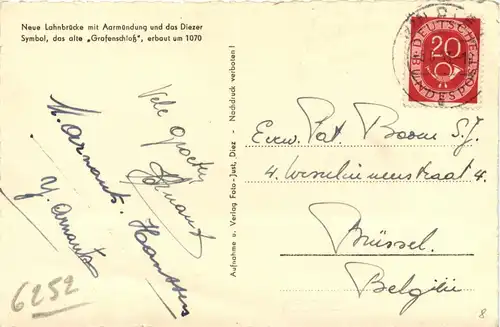 Neue Lahnbrücke mit Aarmündung und das Diezer
Symbol, das alte „Grafenschloß", erbaut um 1070
Vele groeten
H. Arnauts. Hanssens
Y. Arnauts
6252
Aufnahme u. Verlag Foto-Just, Diez - Nachdruck verboten!
DEUTSCHE
BUNDESPOST
20
Eerw. Pat. Boom S.J.
4.
Brüssel.
Belgiu
8